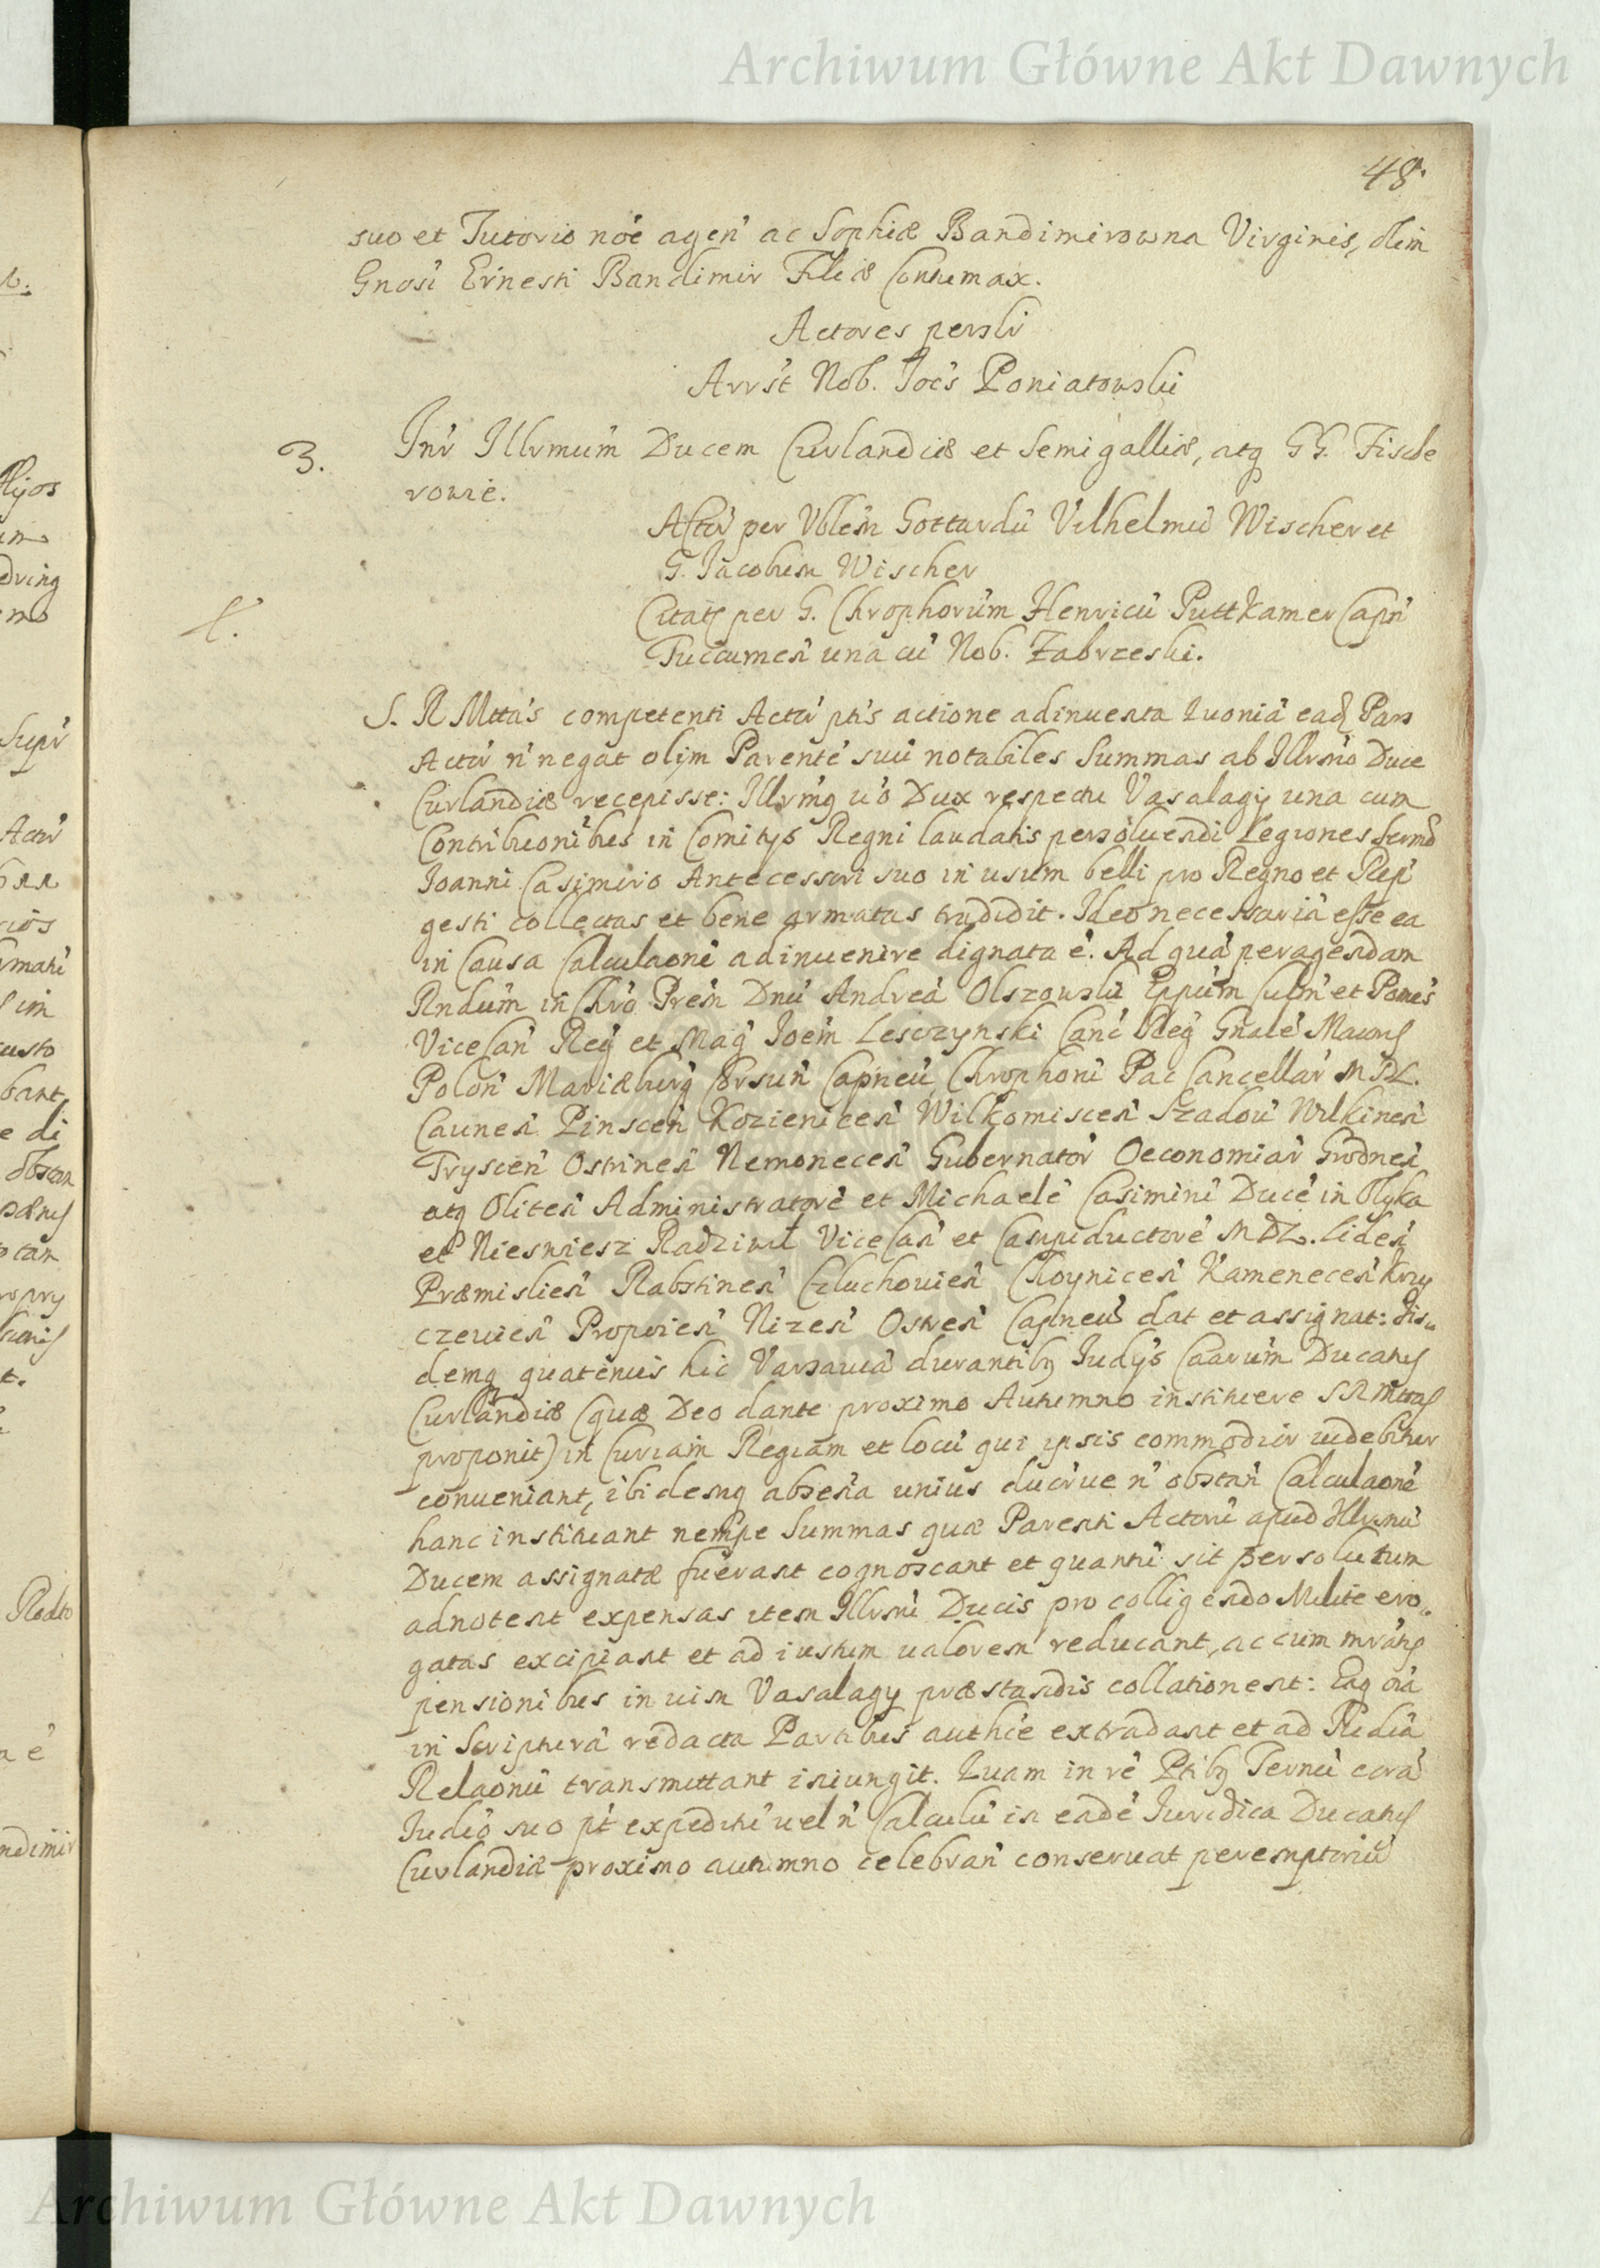 Archiwum Główne Akt Dawnych
48.
suo et Tutorio nōē agen̄ ac Sophiæ Bandimirowna Virginis, olim
Gnosi Ernesti Bandimir Filiæ Contumax.
Actores persłr
Arrst Nob. Joēs Poniatowski
3. Inr Illrmum Ducem Curlandiæ et Semigalliæ, atq GG. Fische
rowie.
Actŕ per Vblem Gottardū Vilhelmū Wischer et
G. Jacobum Wischer
Citati per G. Chrophorum Henricū Puttkamer Capn̄
Tuccumen̄ una cū Nob. Zabrzeski.
S. R Mttas competenti Actŕ ptis actione adinuenta Quoniā ead Pars
Actŕ n̄ negat olym Parentē suū notabiles Summas ab Illrmo Duce
Curlandiæ recepisse: Illrmq uō Dux respectu Vasalagy una cum
Contribuonibus in Comitys Regni laudatis persoluendi Legiones Sermo
Joanni Casimiro Antecessori suo in usum belli pro Regno et Rep
gesti collectas et bene armatas tradidit. Ideo necessariā esse ea
in Causa Calculaonē adinuenire dignata ē. Ad quā peragendam
Rndum in Chro Prem Dnū Andreā Olszowski Eppum Culm̄ et Pomes
Vice Can̄ Reg et Mag Joem Lesczynski Canc Reg Gnalē Maioris
Polon̄ Mariæburg Corsun̄ Capneū Chrophorū Pac Cancellar MDL.
Caunen̄ Pinscen̄ Kozienicen̄ Wilkomiscen̄ Szadou Wilkinen̄
Tryscen̄ Ostrinen̄ Nemonecen̄ Gubernator Oeconomiar Grodnen̄
atq Oliten̄ Administratorē et Michaelē Casimirū Ducē in Olyka
et Nieswiesz Radziwił Vice Can̄ et Campiductorē MDL. Liden̄
Præmislien̄ Rabstinen̄ Czluchouien̄ Choynicen̄ Kamenecen̄ Krzy
czeuien̄ Propoien̄ Nizen̄ Ostren̄ Capneū dat et assignat: Iis„
demq quatenus hic Varsauiā durantibq Judys Caarum Ducatus
Curlandiæ (quæ Deo dante proximo Autumno instituere SRMttas
proponit) in Curiam Regiam et locū qui ipsis commodior uidebitur
conueniant, ibidemq absen̄a unius duorue n̄ obstan̄ Calculaonē
hanc instituant nempe Summas quæ Parenti Actorū apud Illrmū
Ducem assignatæ fuerant cognoscant et quantū sit persolutum
adnotent expensas item Illrmi Ducis pro colligendo Milite ero„
gatas excipiant et ad iustum ualorem reducant, ac cum mratis
pensionibus in uim Vasalagy præstandis collationent: Eaq oiā
in Scripturā redacta Partibus authce extradant et ad Iudiā
Relaonū transmittant iniungit. Quam in rē Ptibq Ternū corā
Iudio suo pt expeditū uel n̄ Calculū in eadē Iuridica Ducatus
Curlandiæ proximo autumno celebran̄ conseruat peremptoriū
Archiwum Główne Akt Dawnych